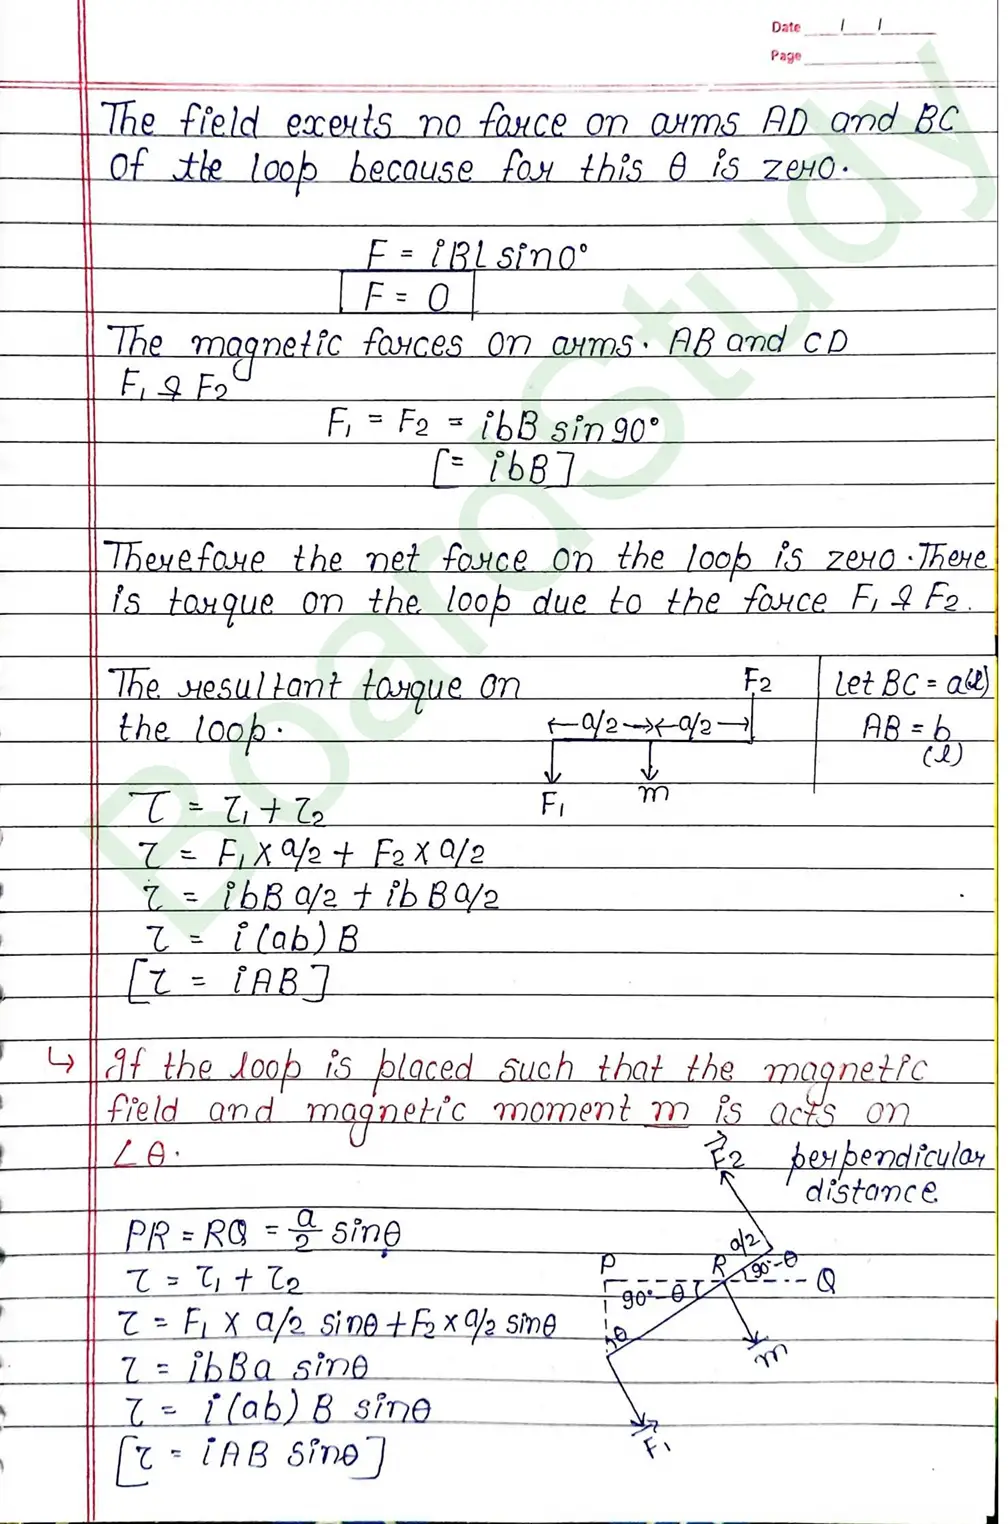 Date / /
Page
The field exerts no force on arms AD and BC
of the loop because for this θ is zero.
F = iBl sin0°
F = 0
The magnetic forces on arms. AB and CD
F₁ & F₂
F₁ = F₂ = ibB sin90°
[= ibB]
Therefore the net force on the loop is zero. There
is torque on the loop due to the force F₁ & F₂.
The resultant torque on
the loop.
F₂
←a/2→←a/2→
F₁
m
Let BC = a(l)
AB = b
(l)
τ = τ₁ + τ₂
τ = F₁ × a/2 + F₂ × a/2
τ = ibB a/2 + ibB a/2
τ = i(ab)B
[τ = iAB]
↳ If the loop is placed such that the magnetic
field and magnetic moment m is acts on
∠θ.
F₂ perpendicular
distance
PR = RQ = a/2 sinθ
τ = τ₁ + τ₂
τ = F₁ × a/2 sinθ + F₂ × a/2 sinθ
τ = ibBa sinθ
τ = i(ab) B sinθ
[τ = iAB sinθ]
a/2
P
R
90°-θ
Q
90°-θ
θ
m
F₁
BoardStudy